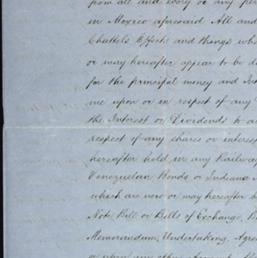 from all and every or any per
in Mexico aforesaid All and
Chattels Effects and things who
or may hereafter appear to be d
for the principal money and In
me upon or in respect of any
the Interest or Dividends to a
respect of any shares or interes
hereafter held in any Railway
Venezuelan Bonds or Indiana
which are now or may hereafter b
Note Bill or Bills of Exchange, B
Memorandum, Undertaking, Agre